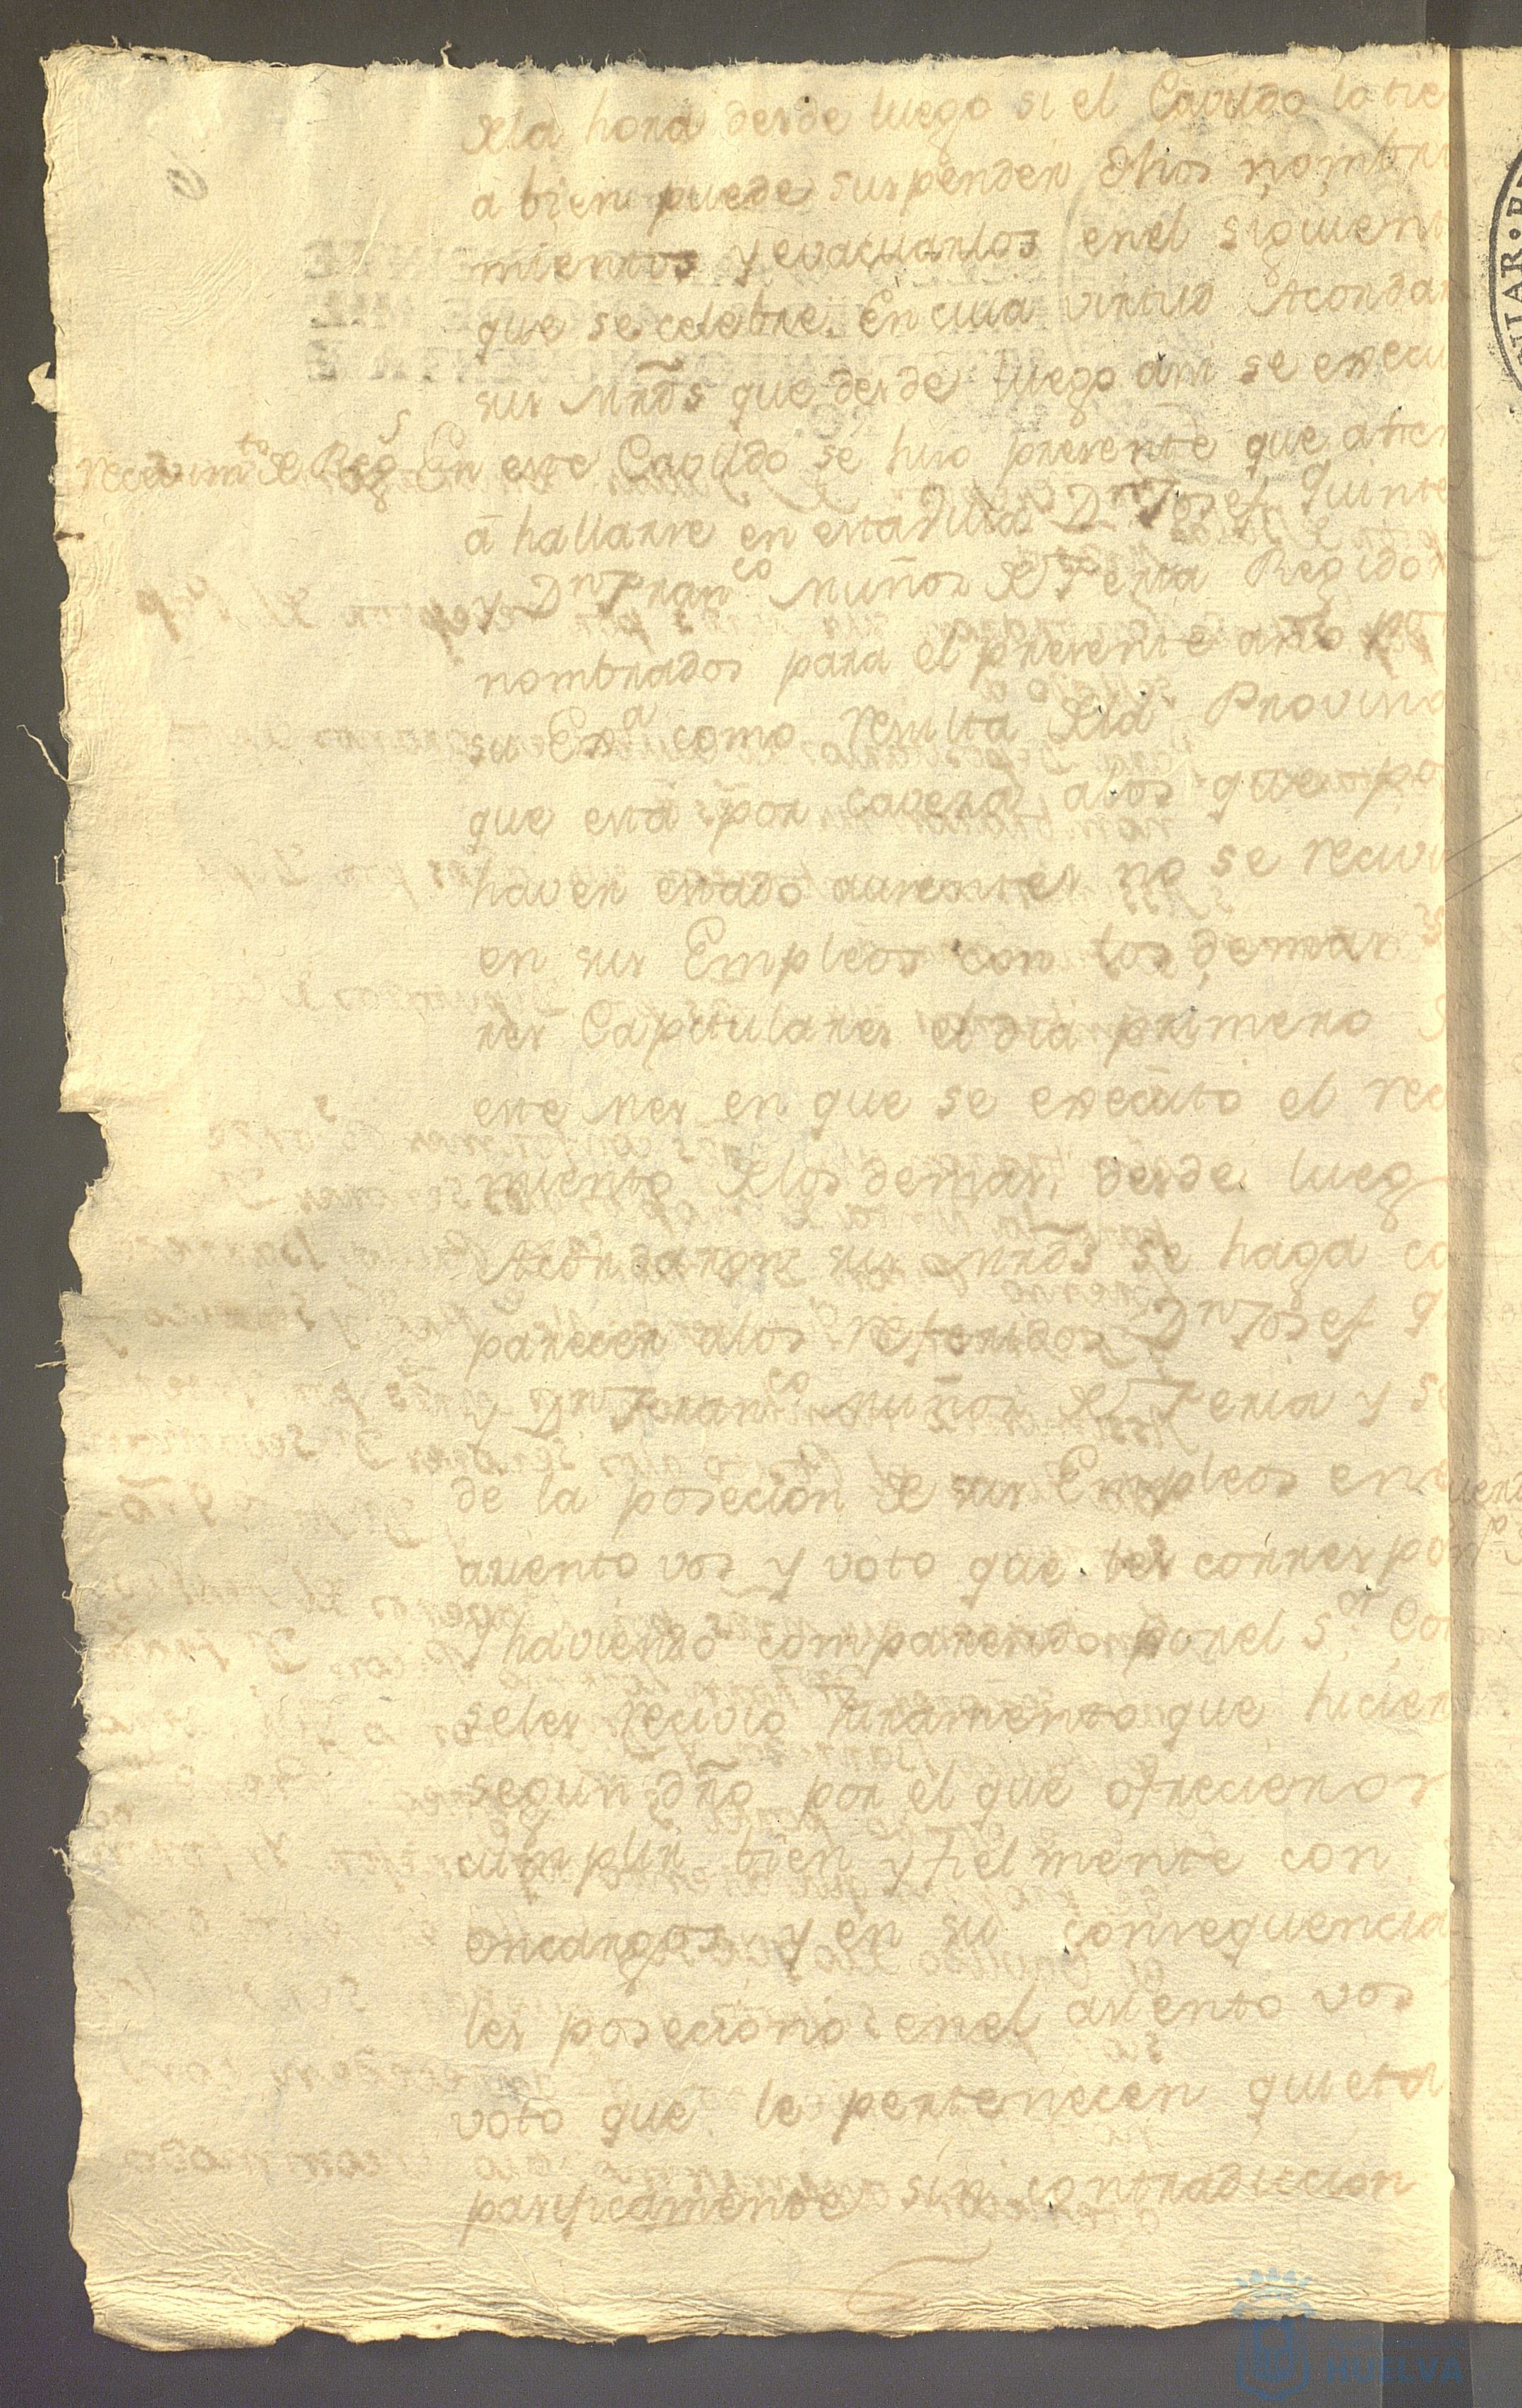 dela hora desde luego si el Cavildo lo tie
á bien puede suspender dhos nombra
mientos y evacuarlos en el siguient
que se celebre. En cuia virtud Acordar
sus mrds que desde luego asi se execu
recevimto de Regs En este Cavildo se hiso presente que aten
á hallarse en esta Villa Dn Josef Quinte
y Dn Franco Muños de Feria Regidor
nombrados para el presente año por
su Exa como resulta dela Provi
que está por cavesa, alos que po
haver estado ausentes no se reciv
en sus Empleos con los demas
res Capitulares el dia primero
este mes en que se executó el rec
miento delos demas, desde lueg
Acordaron sus mrds se haga co
parecer alos referidos Dn Josef Q
y Dn Franco Muños de Feria y se
de la posecion de sus Empleos en
asiento vos y voto que les correspon
Y haviendo comparecido por el Sor Cor
seles recivió juramento que hicier
segun dro por el que ofrecieron
cumplir bien y fielmente con
encargos y en su consequencia
les posecionó en el asiento vos
voto que le pertenecen quieta
pasificamente sin contradiccion
HUELVA